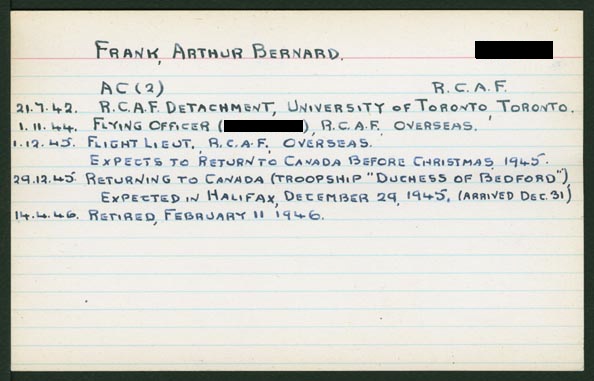 FRANK, ARTHUR BERNARD.
AC(2) R.C.A.F.
21.7.42. R.C.A.F. DETACHMENT, UNIVERSITY OF TORONTO, TORONTO.
1.11.44. FLYING OFFICER ( ), R.C.A.F. OVERSEAS.
1.12.45. FLIGHT LIEUT., R.C.A.F. OVERSEAS.
EXPECTS TO RETURN TO CANADA BEFORE CHRISTMAS, 1945.
29.12.45 RETURNING TO CANADA (TROOPSHIP "DUCHESS OF BEDFORD"),
EXPECTED IN HALIFAX, DECEMBER 29, 1945. (ARRIVED DEC. 31)
14.4.46. RETIRED, FEBRUARY 11 1946.